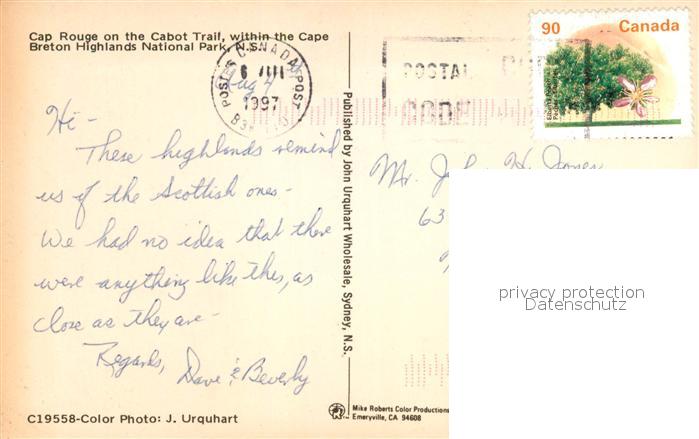 Cap Rouge on the Cabot Trail, within the Cape
Breton Highlands National Park, N.S.
CANADA
POSTES POST
1997
Aug 4
POSTAL
CODE
90 Canada
Hi -
These highlands remind
us of the Scottish ones -
We had no idea that there
were anything like this, as
close as they are -
Regards,
Dave & Beverly
C19558-Color Photo: J. Urquhart
Published by John Urquhart Wholesale, Sydney, N.S.
Mr. John H. Jones
63
privacy protection
Datenschutz
Mike Roberts Color Productions
Emeryville, CA 94608